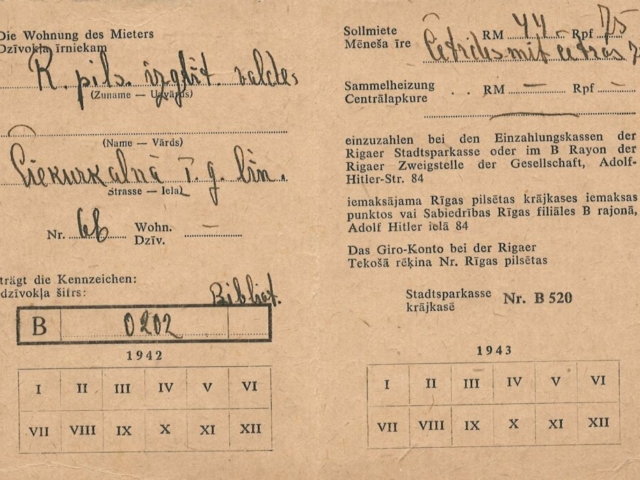 Die Wohnung des Mieters
Dzīvokļa īrniekam
R. pils. izglīt. valdes
(Zuname — Uzvārds)
(Name — Vārds)
Ciekurkalnā I. g. līn.
Strasse — Iela
Nr. 6b Wohn. —
Dzīv.
trägt die Kennzeichen:
dzīvokļa šifrs: Bibliot.
B 0202
1942
I II III IV V VI
VII VIII IX X XI XII
Sollmiete RM 44 Rpf 75
Mēneša īre Četrdesmit četras
Sammelheizung . RM — Rpf —
Centrālapkure
einzuzahlen bei den Einzahlungskassen der
Rigaer Stadtsparkasse oder im B Rayon der
Rigaer Zweigstelle der Gesellschaft, Adolf-
Hitler-Str. 84
iemaksājama Rīgas pilsētas krājkases iemaksas
punktos vai Sabiedrības Rīgas filiāles B rajonā,
Adolf Hitler ielā 84
Das Giro-Konto bei der Rigaer
Tekošā rēķina Nr. Rīgas pilsētas
Stadtsparkasse Nr. B 520
krājkasē
1943
I II III IV V VI
VII VIII IX X XI XII